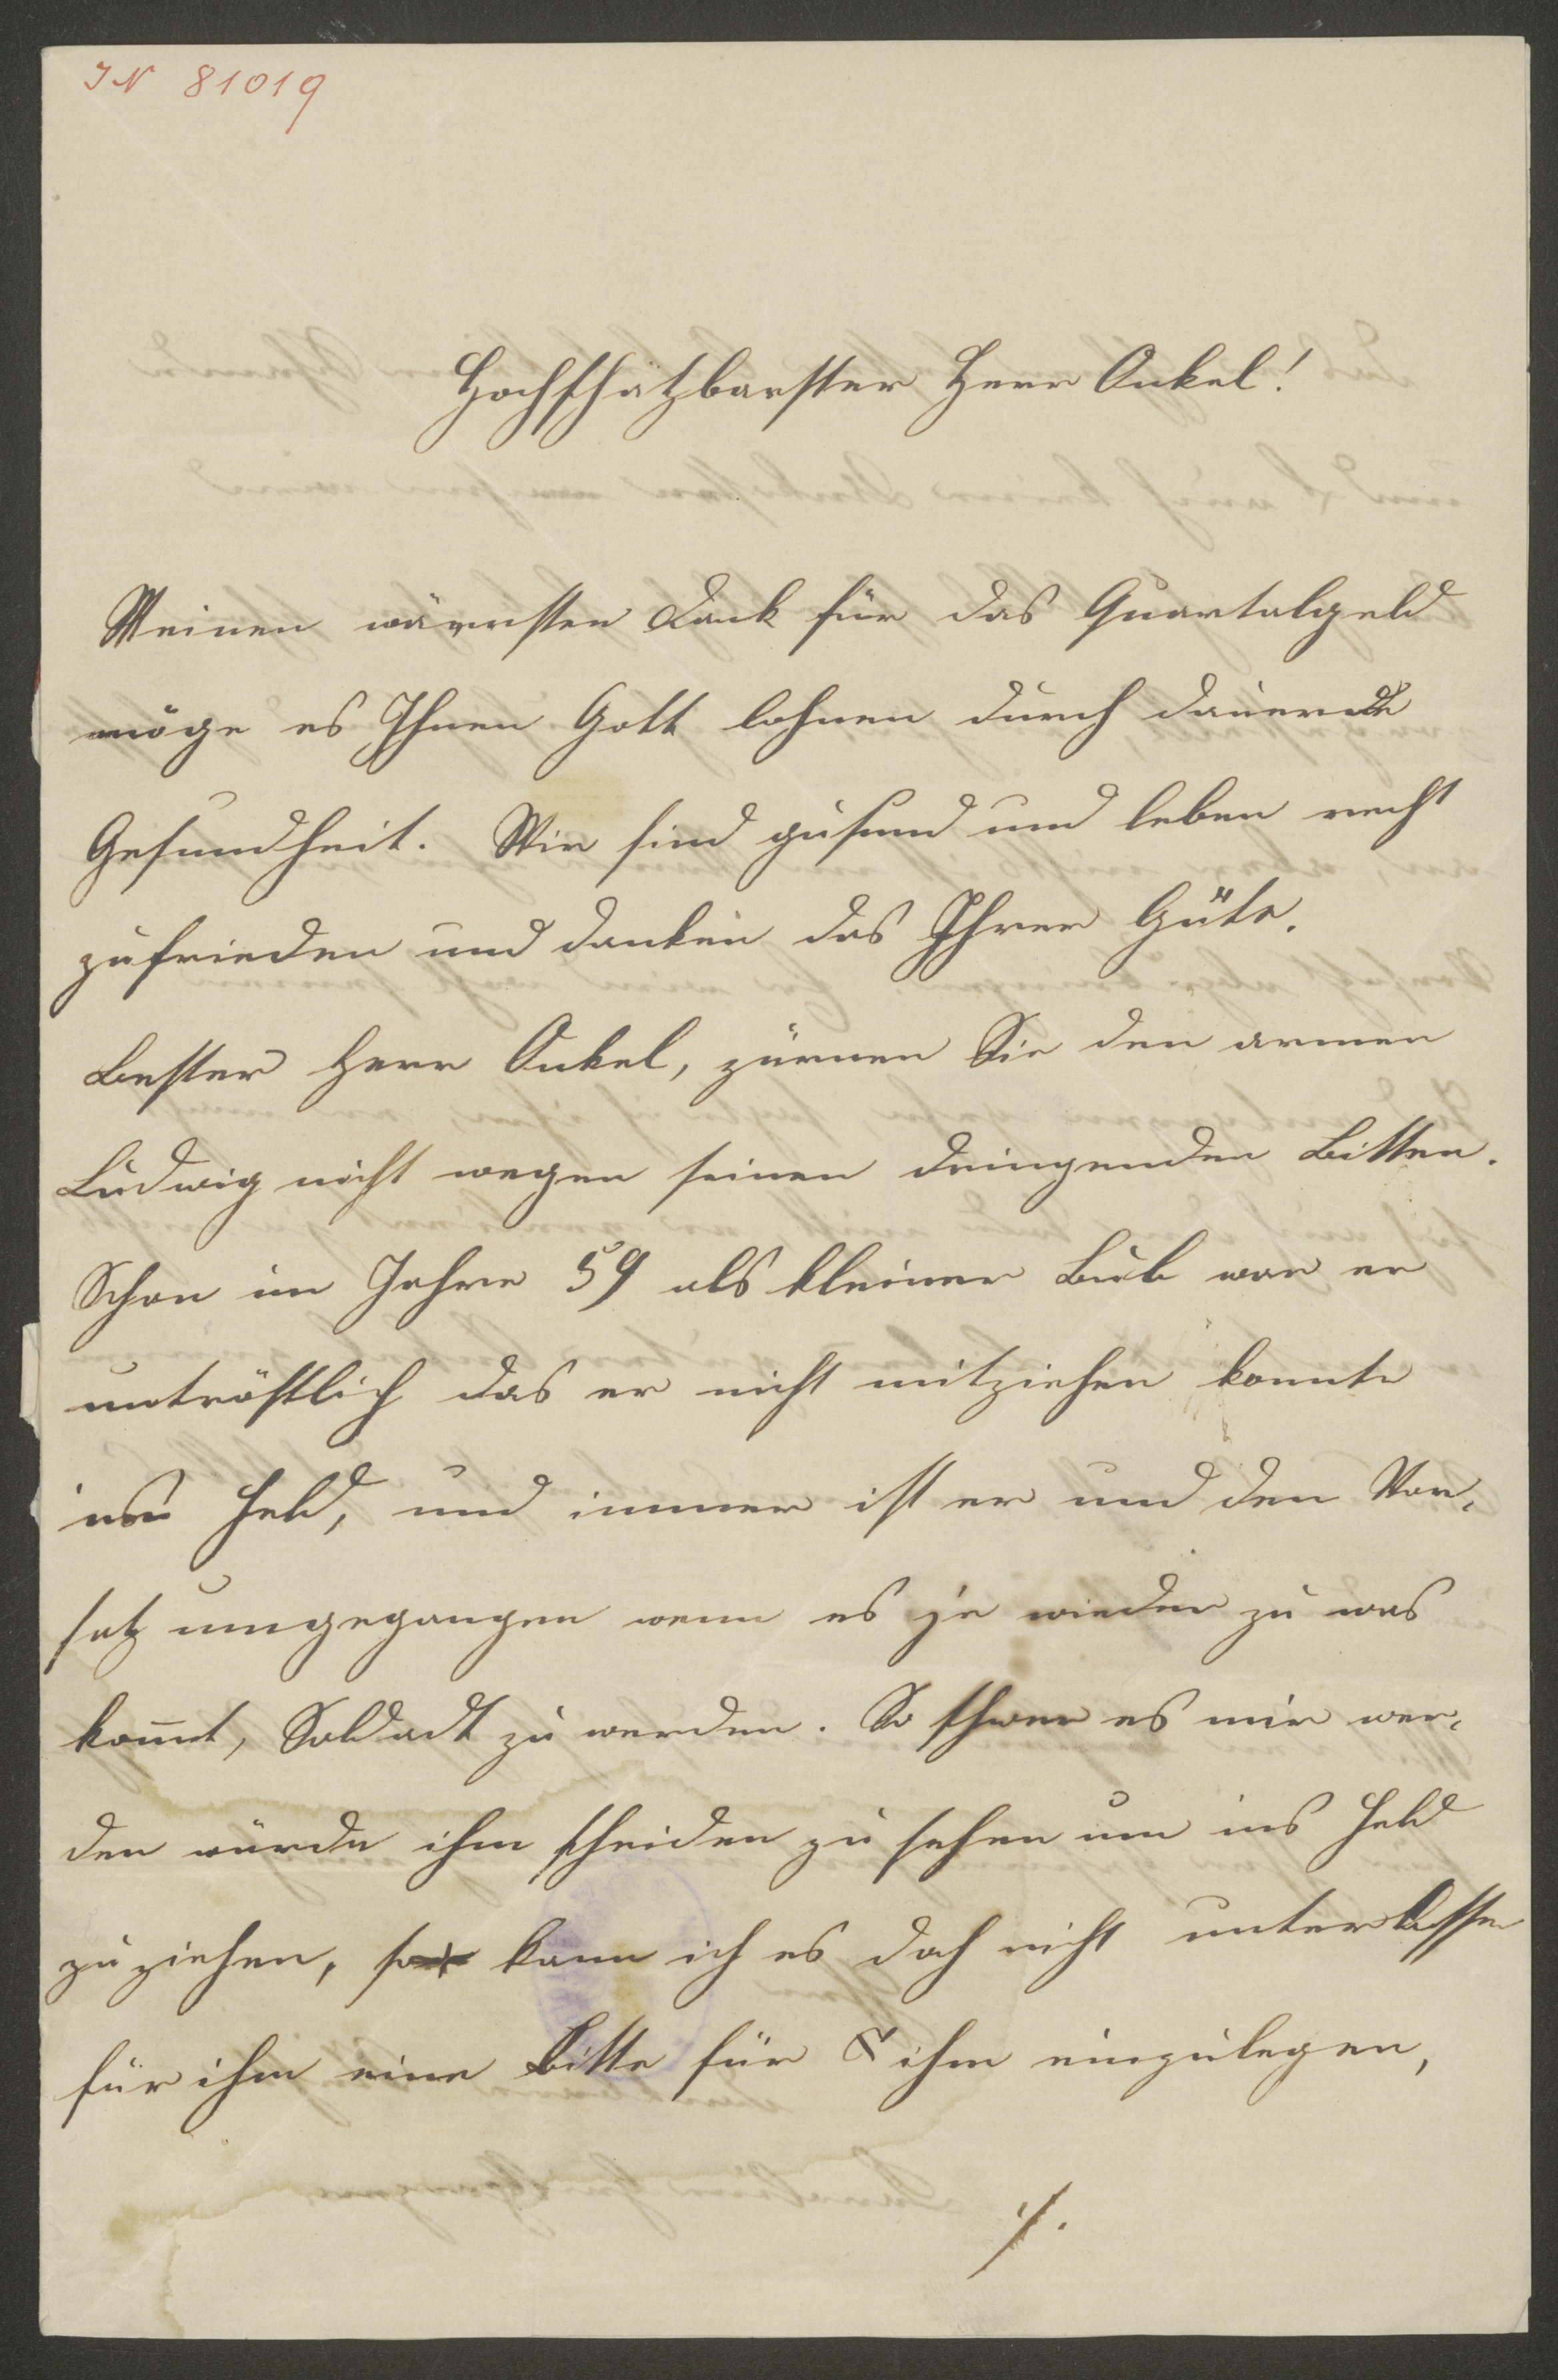 IN 81019
Hochschätzbarster Herr Onkel!
Meinen wärmsten Dank für das Quartalgeld
möge es Ihnen Gott lohnen durch dauernde
Gesundheit. Wir sind gesund und leben recht
zufrieden und danken das Ihrer Güte.
Bester Herr Onkel, zürnen Sie den armen
Ludwig nicht wegen seinen dringenden Bitten.
Schon im Jahre 59 als kleiner Bub war er
untröstlich das er nicht mitziehen konnte
ins Feld, und immer ist er und den Vor-
satz umgegangen wenn es je wieder zu was
kommt, Soldadt zu werden. So schwer es mir wer-
den würde ihm scheiden zu sehen um ins Feld
zu ziehen, so kann ich es doch nicht unterlassen
für ihm eine Bitte für ihm einzulegen,
./.